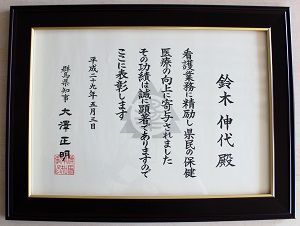 鈴木伸代殿
看護業務に精励し県民の保健
医療の向上に寄与されました
その功績は誠に顕著でありますので
ここに表彰します
平成二十九年五月三日
群馬県知事 大澤正明